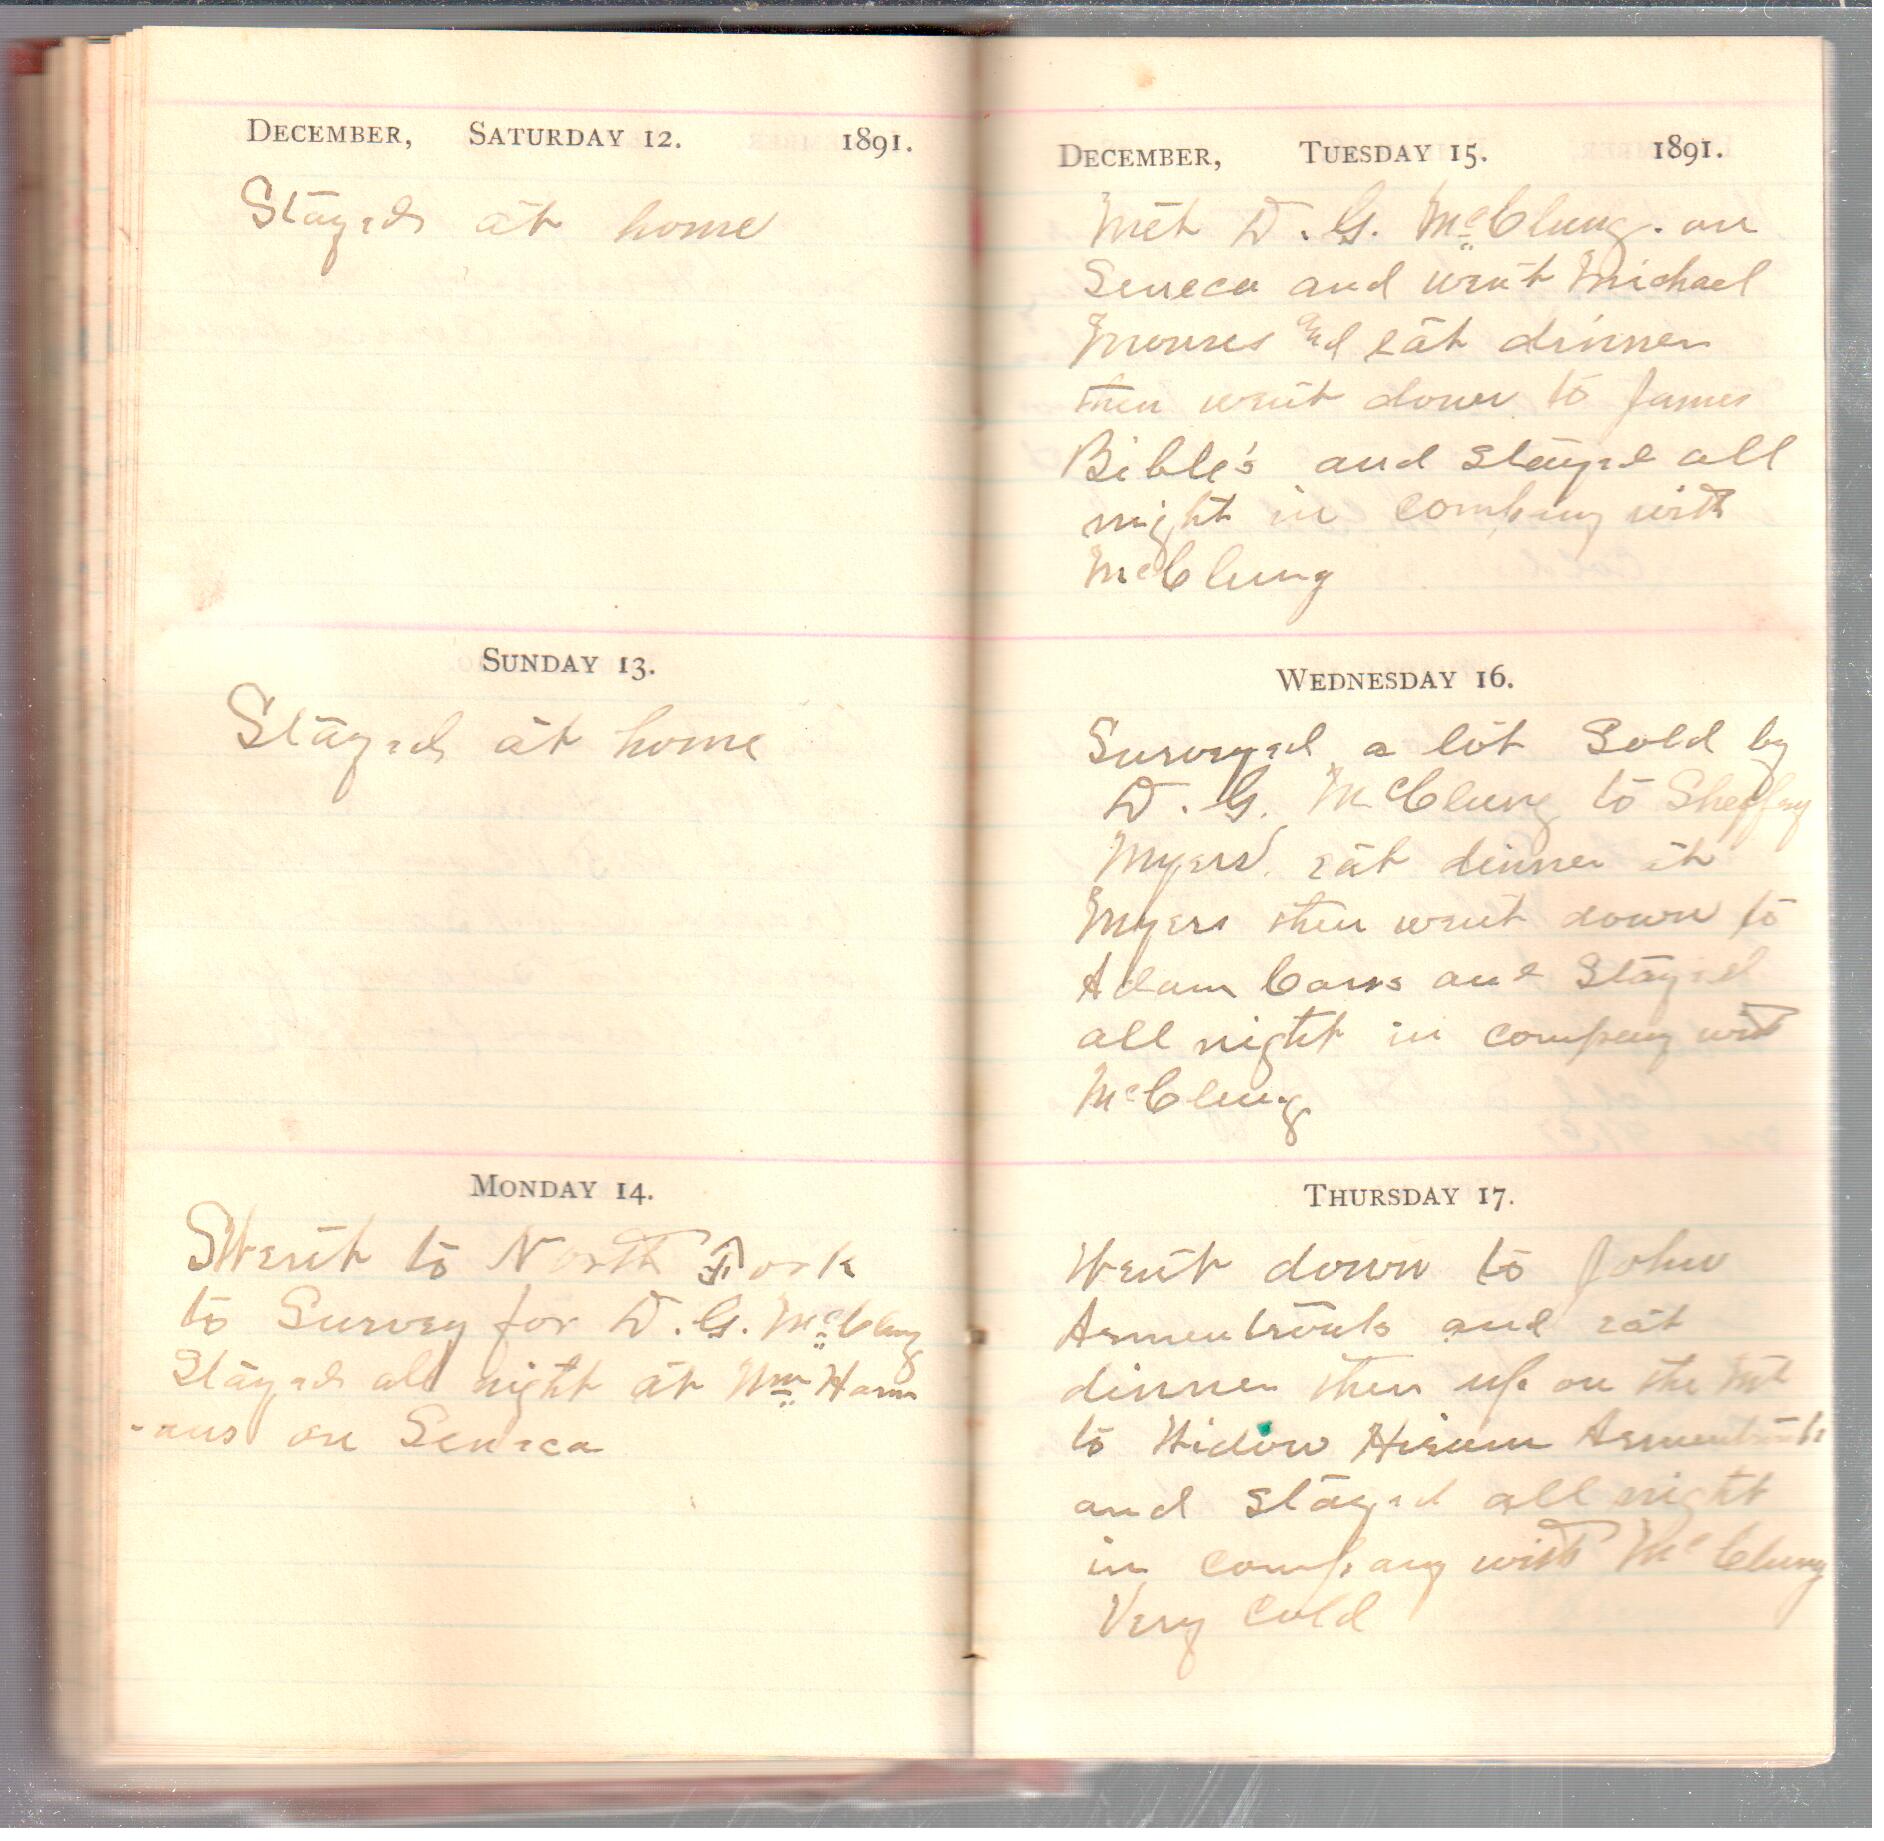 DECEMBER, SATURDAY 12. 1891.
Stayed at home
SUNDAY 13.
Stayed at home
MONDAY 14.
Went to North Fork
to Survey for D. G. McClung
Stayed all night at Wm Harm
-ans on Seneca
DECEMBER, TUESDAY 15. 1891.
Met D. G. McClung. on
Seneca and went Michael
Mouses and eat dinner
then went down to James
Bible's and stayed all
night in company with
McClung
WEDNESDAY 16.
Surveyed a lot Sold by
D. G. McClung to
Myers. eat dinner at
Myers then went down to
Adam Carrs and Stayed
all night in company with
McClung
THURSDAY 17.
Went down to John
Armentrouts and eat
dinner then up on the Mt
to Widow Hiram Armentrouts
and stayed all night
in company with McClung
Very Cold